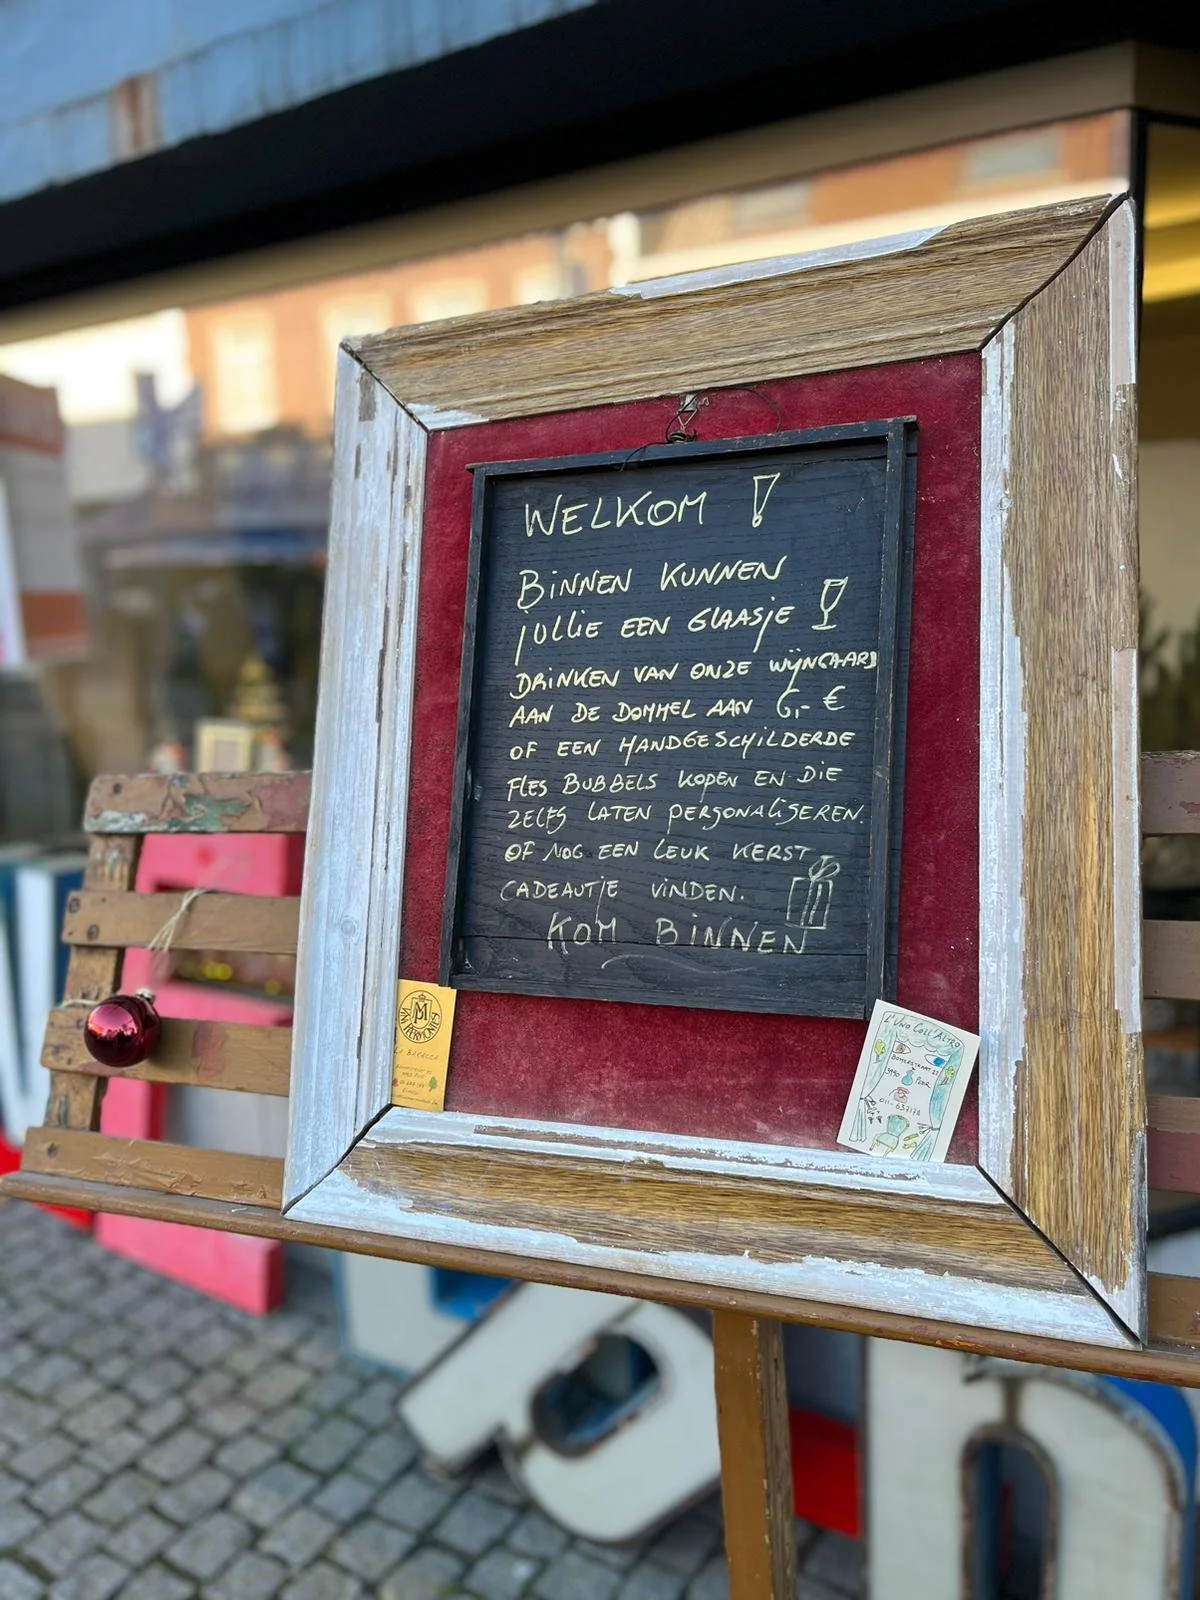 WELKOM !
BINNEN KUNNEN
JULLIE EEN GLAASJE
DRINKEN VAN ONZE WIJNGAARD
AAN DE DOMMEL AAN 6,- €
OF EEN HANDGESCHILDERDE
FLES BUBBELS KOPEN EN DIE
ZELFS LATEN PERSONALISEREN.
OF NOG EEN LEUK KERST
CADEAUTJE VINDEN.
KOM BINNEN
LA BARACCA
L'UNO COLL'ALTRO
DOMERSTRAAT 21
3990 PEER
011-637178